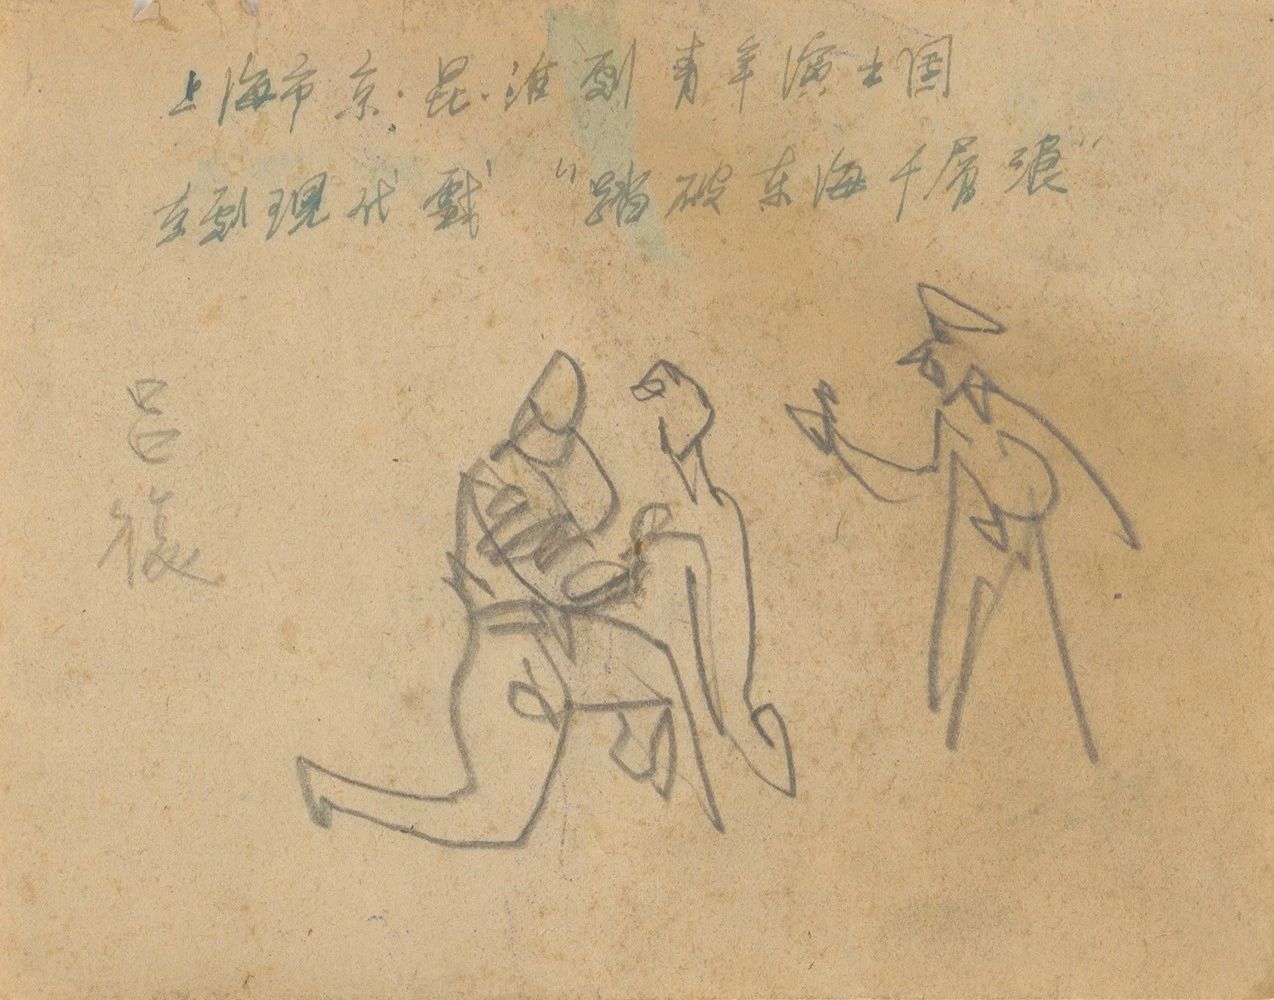 上海市京.昆.淮剧青年演出团
京剧现代戲 "踏破东海千層浪"
吕復